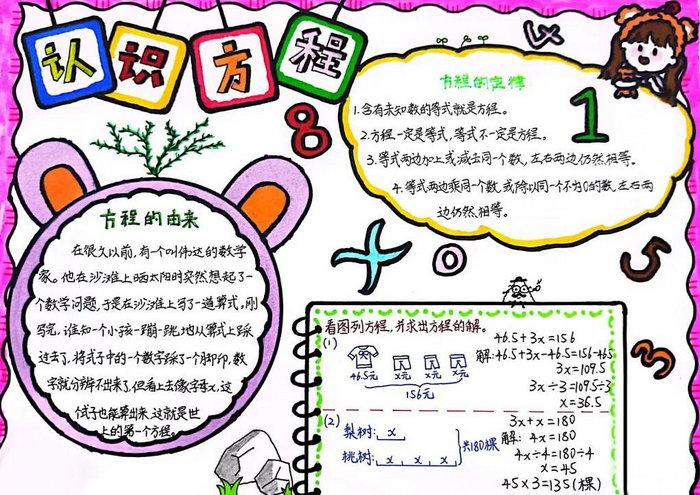 认识方程
方程的定律
1.含有未知数的等式就是方程。
2.方程一定是等式,等式不一定是方程。
3.等式两边加上或减去同一个数,左右两边仍然相等。
4.等式两边乘同一个数,或除以同一个不为0的数,左右两
边仍然相等。
方程的由来
在很久以前,有一个叫伟达的数学
家。他在沙滩上晒太阳时突然想起了一
个数学问题,于是在沙滩上写了一道算式,刚
写完,谁知一个小孩一蹦一跳地从算式上踩
过去了,将式子中的一个数字踩了一个脚印,数
字就分辨不出来了,但看上去像字母x,这
式子也能算出来,这就是世
上的第一个方程。
8
1
0
5
3
看图列方程,并求出方程的解。
(1)
46.5元 x元 x元 x元
156元
46.5+3x=156
解:46.5+3x-46.5=156-46.5
3x=109.5
3x÷3=109.5÷3
x=36.5
(2)
梨树: x
桃树: x x x
共180棵
3x+x=180
解: 4x=180
4x÷4=180÷4
x=45
45×3=135(棵)